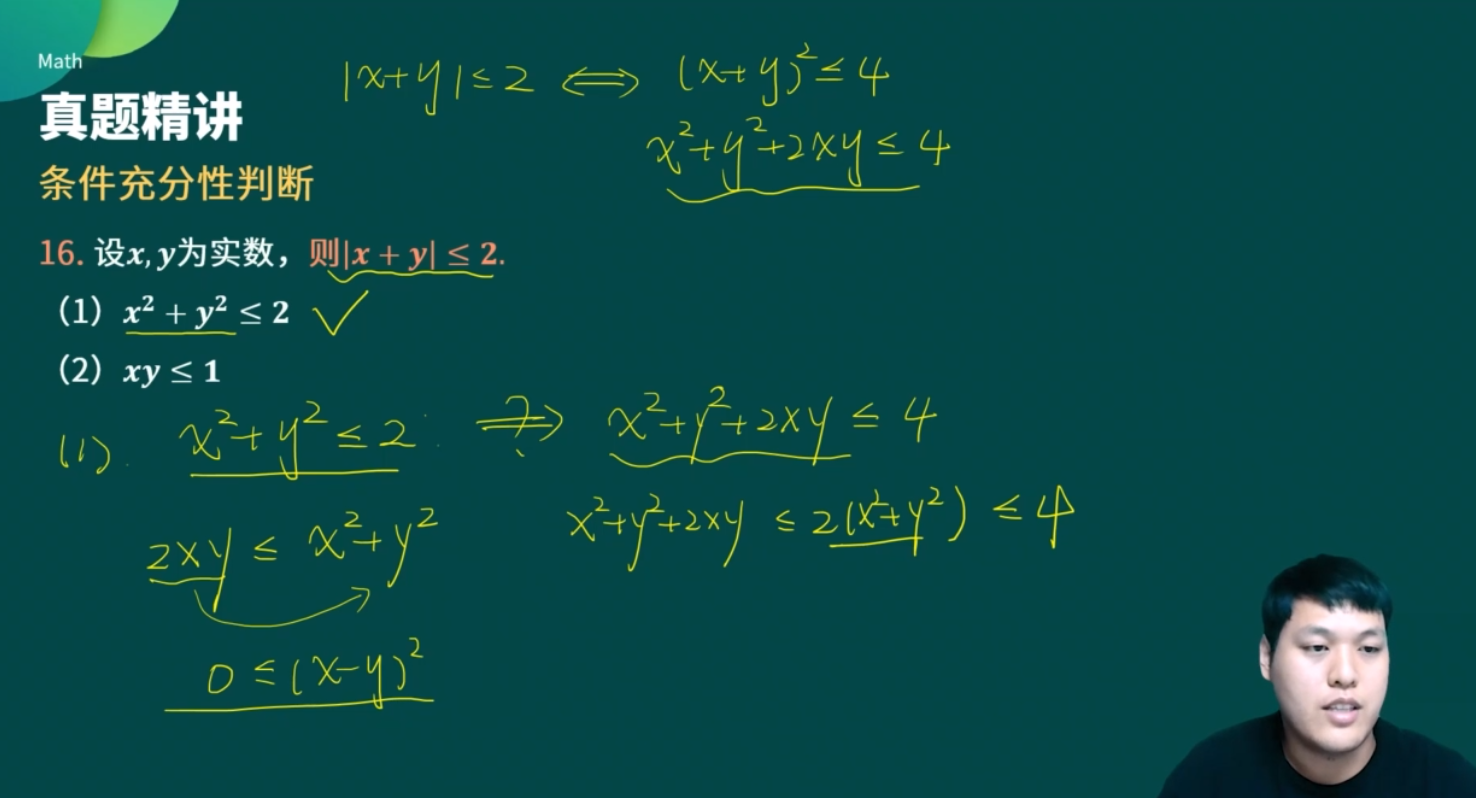 Math
真题精讲
条件充分性判断
|x+y|≤2 ⟺ (x+y)²≤4
x²+y²+2xy≤4
16. 设x, y为实数，则|x + y| ≤ 2.
（1）x² + y² ≤ 2 ✓
（2）xy ≤ 1
(1). x²+y²≤2 ⇒ ? x²+y²+2xy≤4
2xy≤x²+y²
x²+y²+2xy≤2(x²+y²)≤4
0≤(x-y)²